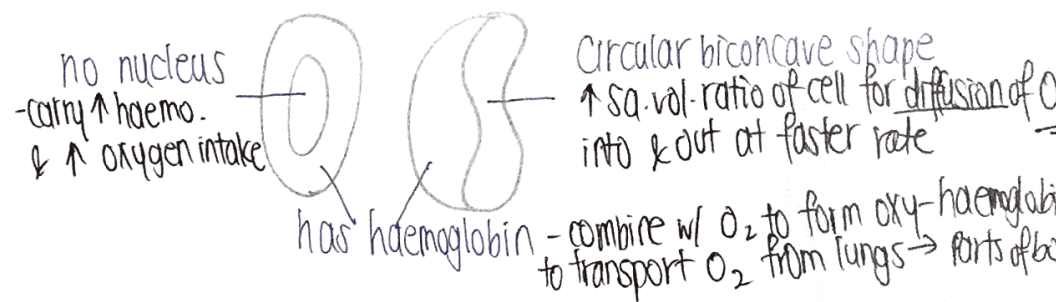 no nucleus
-carry ↑ haemo.
& ↑ oxygen intake
circular biconcave shape
↑ sa.vol.ratio of cell for diffusion of
into & out at faster rate
has haemoglobin - combine w/ O₂ to form oxy-haemoglobi
to transport O₂ from lungs → parts of